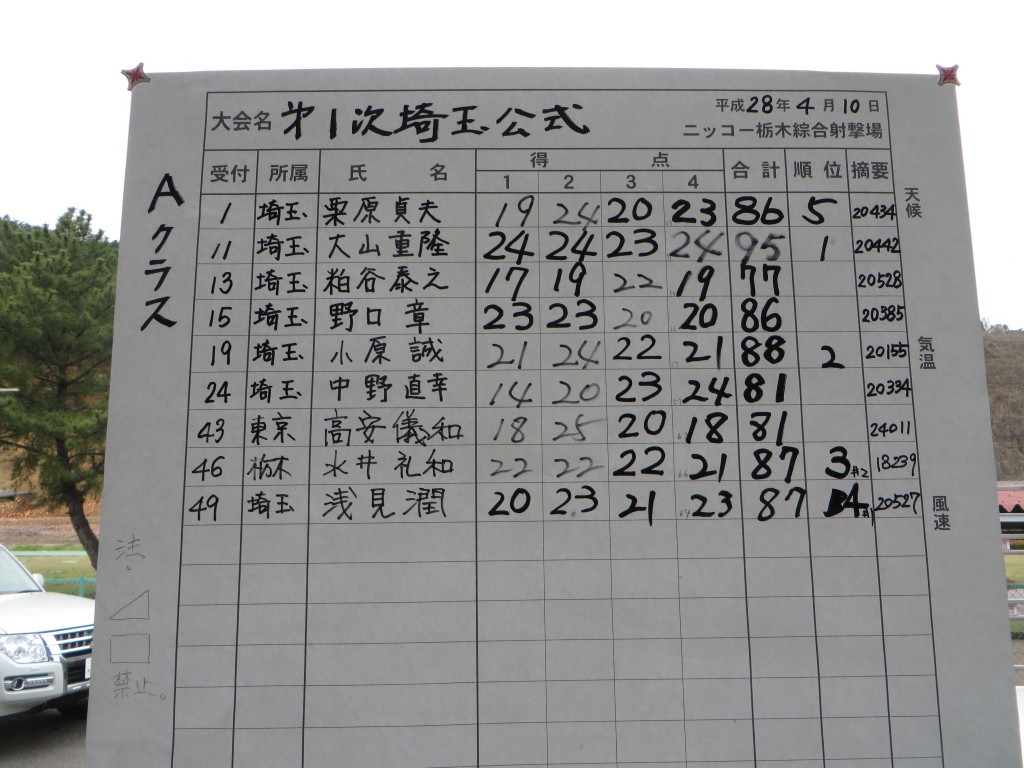 平成28年4月10日
大会名 第1次埼玉公式
ニッコー栃木綜合射撃場
Aクラス
受付 所属 氏名 得点 合計 順位 摘要
1 2 3 4
1 埼玉 栗原貞夫 19 24 20 23 86 5 20434
11 埼玉 大山重隆 24 24 23 24 95 1 20442
13 埼玉 粕谷泰之 17 19 22 19 77 20528
15 埼玉 野口章 23 23 20 20 86 20385
19 埼玉 小原誠 21 24 22 21 88 2 20155
24 埼玉 中野直幸 14 20 23 24 81 20334
43 東京 高安儀和 18 25 20 18 81 24011
46 栃木 水井礼和 22 22 22 21 87 3 #2 18239
49 埼玉 浅見潤 20 23 21 23 87 4 #1 20527
天候
気温
風速
禁止。